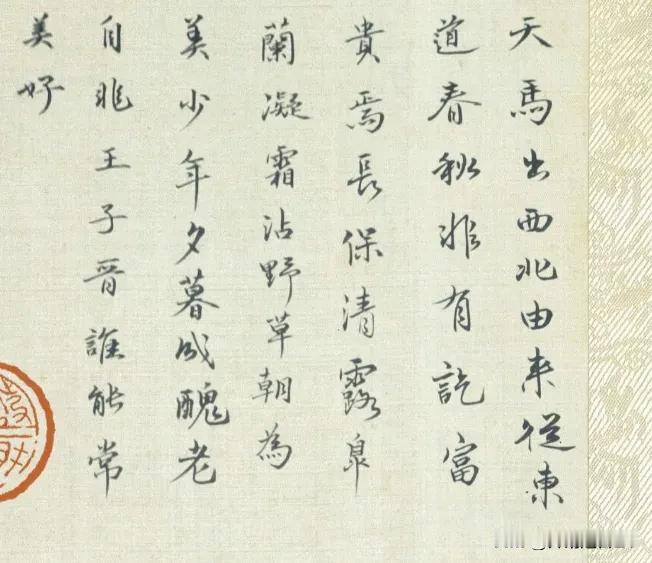 天馬出西北由来從東
道春秋非有訖富
貴焉長保清露皐
蘭凝霜沾野草朝為
美少年夕暮成醜老
自非王子晉誰能常
美好